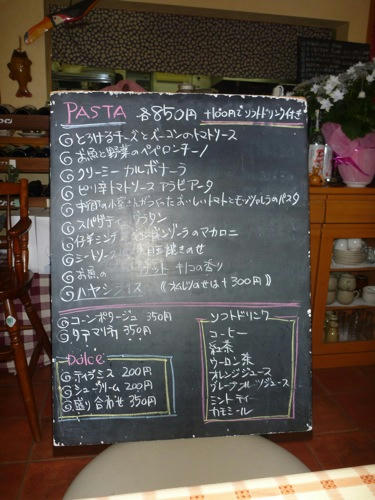 PASTA 各850円 +100円でソフトドリンク付き
とろけるチーズとベーコンのトマトソース
お魚と野菜のペペロンチーノ
クリーミーカルボナーラ
ピリ辛トマトソース アラビアータ
さんがつくったおいしいトマトとモッツァレラのパスタ
スパゲティ グラタン
仔羊ミンチ ゴルゴンゾーラのマカロニ
ミートソース 目玉焼きのせ
お魚の きのこの香り
ハヤシライス 《 のせは+300円》
コーンポタージュ 350円
タアマリカ 350円
Dolce
ティラミス 200円
シュークリーム 200円
盛り合わせ 350円
ソフトドリンク
コーヒー
紅茶
ウーロン茶
オレンジジュース
グレープフルーツジュース
ミントティ
カモミール